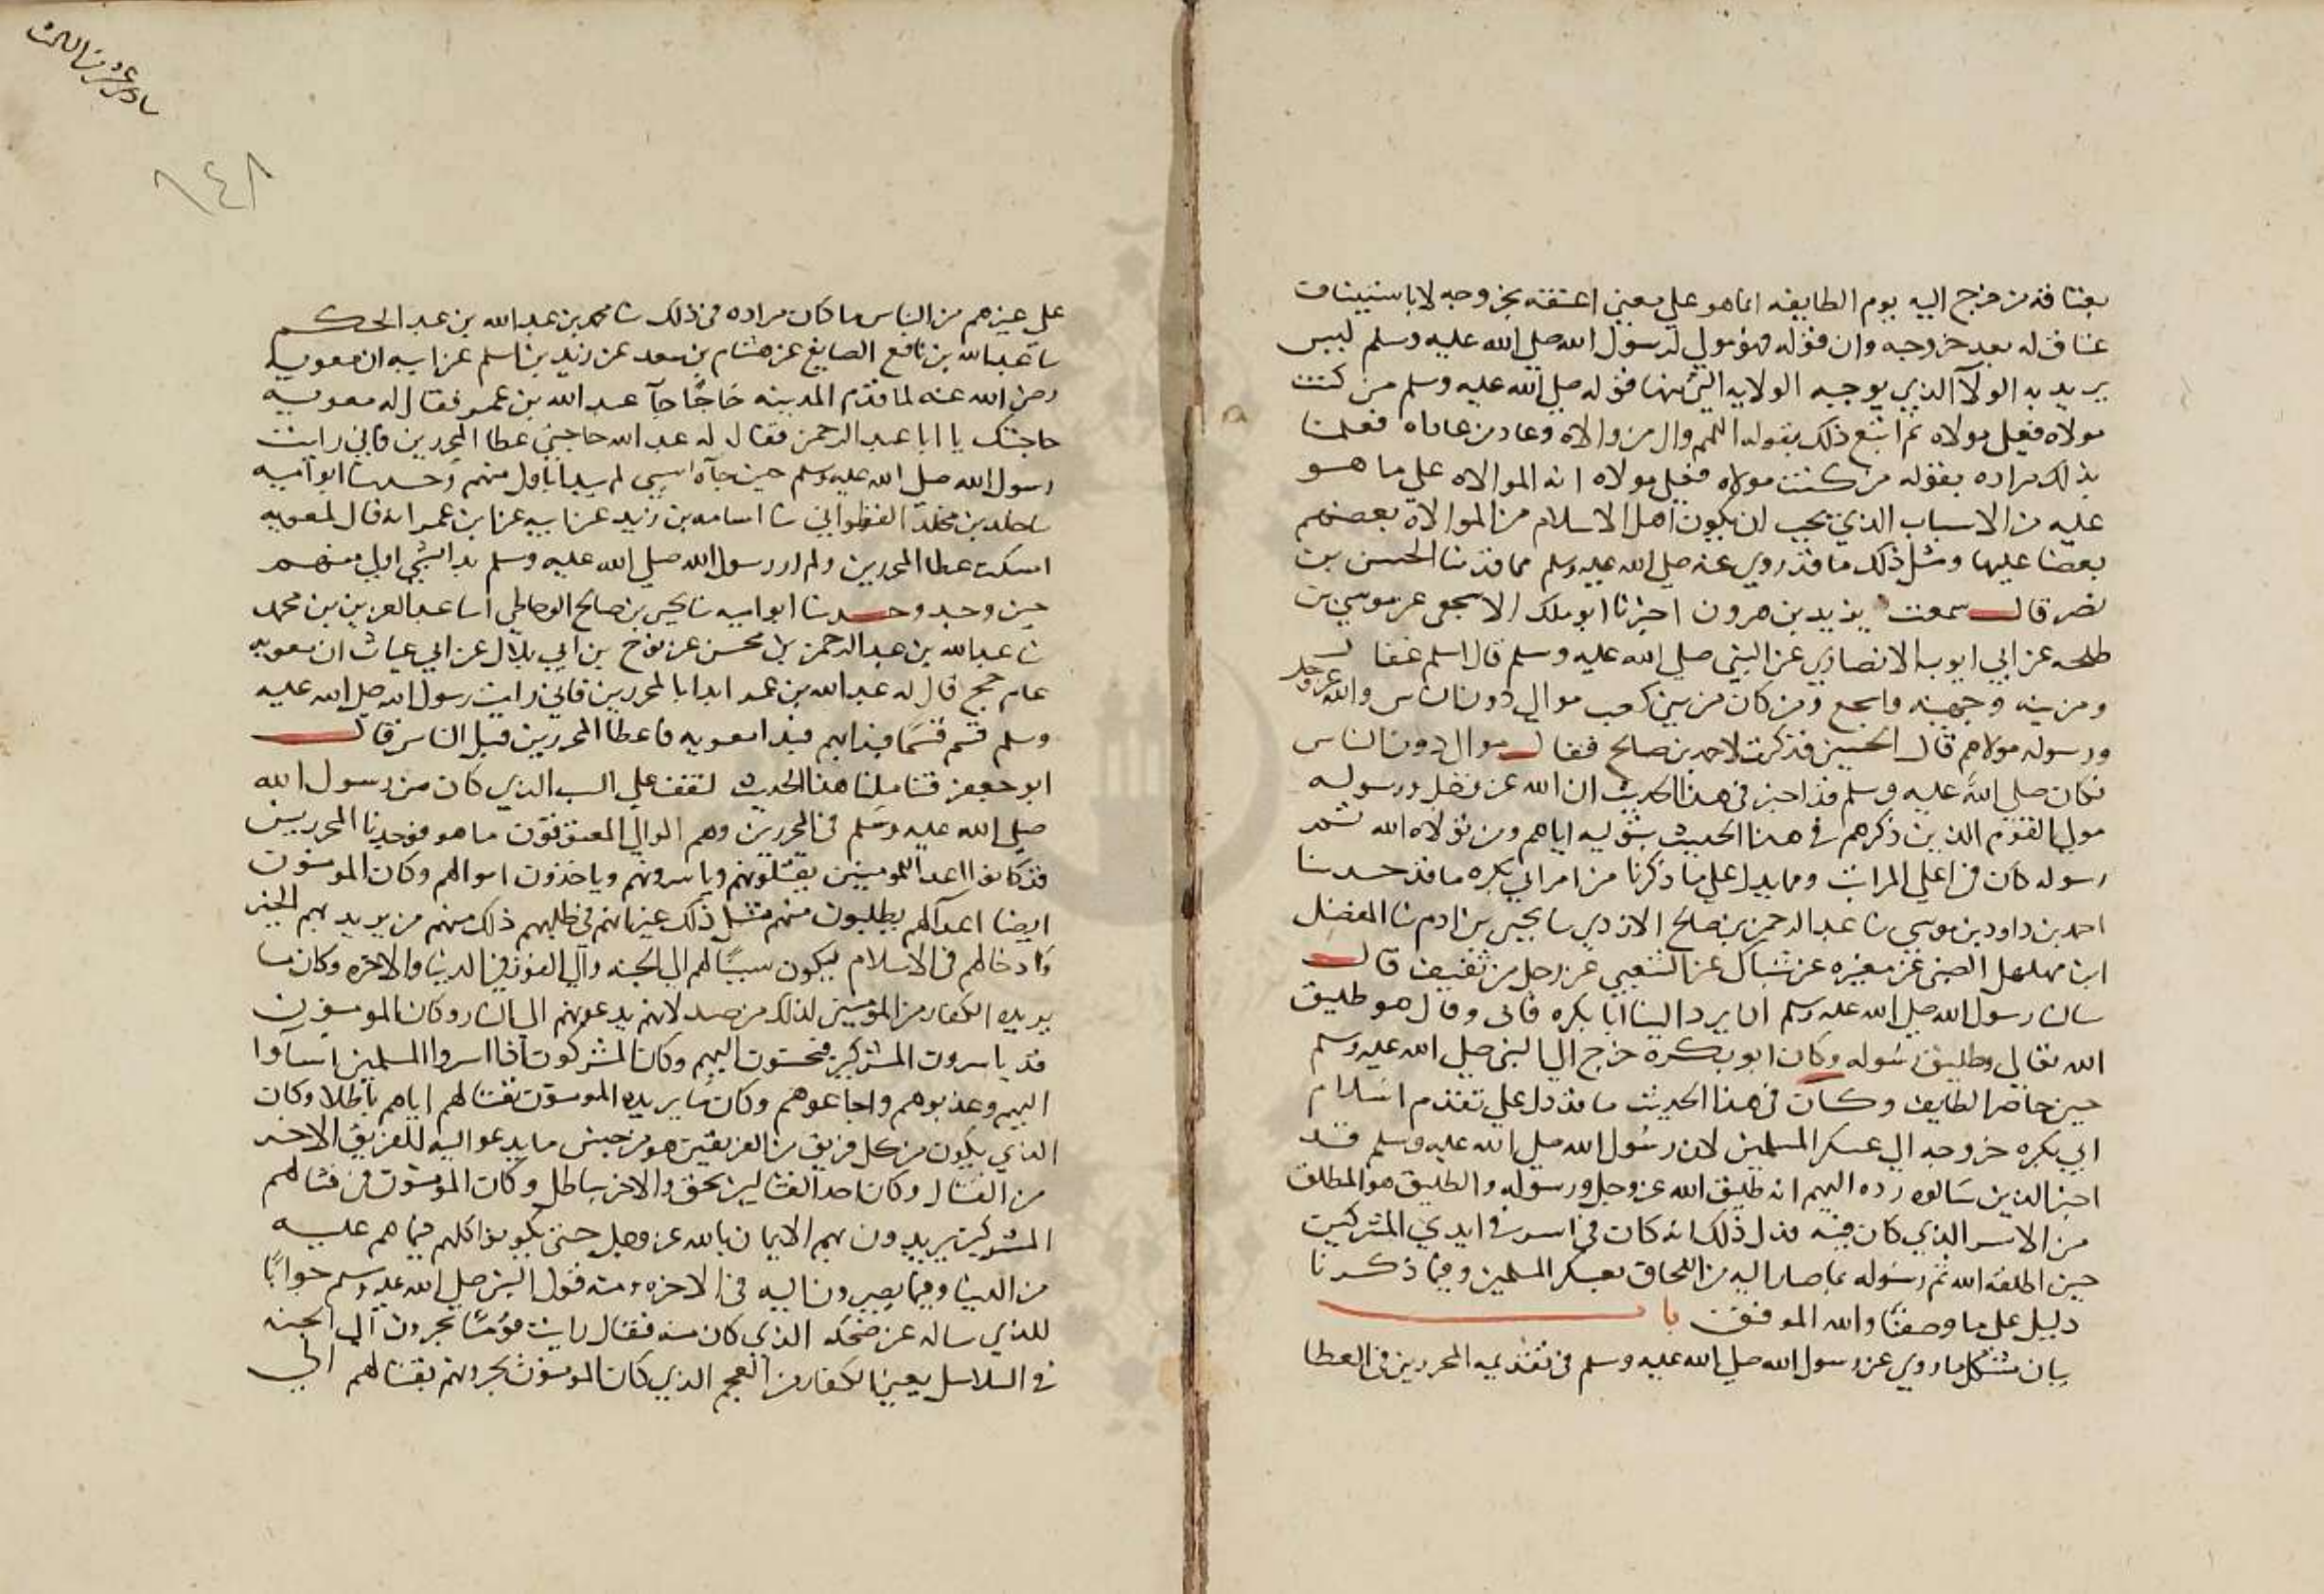 بعتاقه من خرج اليه يوم الطايف انما هو علي معني اعتقته بخروجه لا باستيناف
عتاق له بعد خروجه وان قوله فهو مولي لرسول الله صلي الله عليه وسلم ليس
يريد به الولآ الذي يوجبه الولايه التي منها قوله صلي الله عليه وسلم من كنت
مولاه فعلي مولاه ثم اتبع ذلك بقوله اللهم وال من والاه وعاد من عاداه فعلمنا
بذلك مراده بقوله من كنت مولاه فعلي مولاه انه الموالاه علي ما هو
عليه من الاسباب الذي يجب ان يكون اهل الاسلام من الموالاة بعضهم
بعضا عليها ومثل ذلك ما قد روي عنه صلي الله عليه وسلم مما قد ثنا الحسن بن
نصر قال سمعت يزيد بن هرون اخبرنا ابو ملك الاشجعي عن موسي بن
طلحه عن ابي ايوب الانصاري عن النبي صلي الله عليه وسلم قال اسلم غفا
ومزينه وجهينه واشجع ومن كان من بني كعب موالي دون الناس والله عز وجل
ورسوله مولاهم قال الحسين فذكرت لاحمد بن صالح فقال موال دون الناس
فكان صلي الله عليه وسلم قد اخبر في هذا الحديث ان الله عز وجل ورسوله
موليا القوم الذين ذكرهم في هذا الحديث بتوليه اياهم ومن تولاه الله ثم
رسوله كان في اعلي المراتب ومما يدل علي ما ذكرنا من امر ابي بكره ما قد حدثنا
احمد بن داود بن موسي ثنا عبد الرحمن بن صالح الازدي ثنا يحيي بن ادم ثنا المفضل
ابن مهلهل الضبي عن مغيره عن شباك عن الشعبي عن رجل من ثقيف قال
سالنا رسول الله صلي الله عليه وسلم ان يرد الينا ابا بكره فابي وقال هو طليق
الله تعالي وطليق رسوله وكان ابو بكره خرج الي النبي صلي الله عليه وسلم
حين حاضر الطايف وكان في هذا الحديث ما قد دل علي تقدم اسلام
ابي بكره خروجه الي عسكر المسلمين لان رسول الله صلي الله عليه وسلم قد
اخبر الذين سالوه رده اليهم انه طليق الله عز وجل ورسوله والطليق هو المطلق
من الاسر الذي كان فيه فدل ذلك انه كان في اسر في ايدي المشركين
حين اطلقه الله ثم رسوله بما صار اليه من اللحاق بعسكر المسلمين وفيما ذكرنا
دليل علي ما وصفنا والله الموفق باب
بيان مشكل ما روي عن رسول الله صلي الله عليه وسلم في تقديمه المحررين في العطا
١٤٨
علي غيرهم من الناس ما كان مراده في ذلك ثنا محمد بن عبد الله بن عبد الحكم
ثنا عبد الله بن نافع الصايغ عن هشام بن سعد عن زيد بن اسلم عن ابيه ان معويه
رضي الله عنه لما قدم المدينه حاجا جآ عبد الله بن عمر فقال له معويه
حاجتك يا ابا عبد الرحمن فقال له عبد الله حاجتي عطا المحررين فاني رايت
رسول الله صلي الله عليه وسلم حين جآه شي لم يبدا باول منهم وحدثنا ابو اميه
ثنا خالد بن مخلد القطواني ثنا اسامه بن زيد عن ابيه عن ابن عمر انه قال لمعويه
امسكت عطا المحررين ولم ار رسول الله صلي الله عليه وسلم بدا بشي اول منهم
حين وجد وحدثنا ابو اميه ثنا يحيي بن صالح الوحاظي انا عبد العزيز بن محمد
ثنا عبد الله بن عبد الرحمن بن محسن عن نوح بن ابي بلال عن ابي عياش ان معويه
عام حج قال له عبد الله بن عمر ابدا بالمحررين فاني رايت رسول الله صلي الله عليه
وسلم قسم قسما فبدا بهم فبدا معويه فاعطا المحررين قبل الناس قال
ابو جعفر فتاملنا هذا الحديث لنقف علي السبب الذي كان من رسول الله
صلي الله عليه وسلم في المحررين وهم الموالي المعتقون ما هو فوجدنا المحررين
قد كانوا اعدآ للمومنين يقتلونهم وياسرونهم وياخذون اموالهم وكان المومنون
ايضا اعدآ لهم يطلبون منهم مثل ذلك غير انهم في طلبهم ذلك منهم من يريد بهم الخير
وادخالهم في الاسلام ليكون سببا لهم الي الجنه والي الفوز في الدنيا والاخره وكان ما
يريده الكفار من المومنين لذلك من ضد لانهم يدعونهم الي النار وكان المومنون
قد ياسرون المشركين فيحسنون اليهم وكان المشركون اذا اسروا المسلمين اسآوا
اليهم وعذبوهم واجاعوهم وكان ما يريده المومنون بقتالهم اياهم باطلا وكان
الذي يكون من كل فريق من الفريقين هو من جنس ما يدعو اليه للفريق الاخر
من القتال وكان احد القتالين بحق والاخر بباطل وكان المومنون في قتالهم
المشركين يريدون بهم الايمان بالله عز وجل حتي يكونوا كلهم فيما هم عليه
من الدنيا وفيما يصيرون اليه في الاخره ومنه قول النبي صلي الله عليه وسلم جوابا
للذي ساله عن ضحكه الذي كان منه فقال رايت قوما يجرون الي الجنه
في السلاسل يعني الكفار من العجم الذي كان المومنون يجرونهم بقتالهم الي